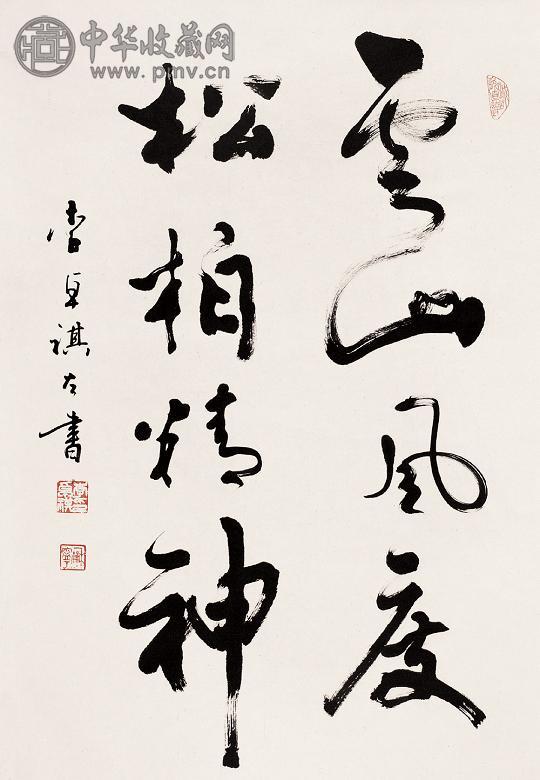 中华收藏网
www.pmv.cn
雲山風度
松柏精神
李卓祺左書